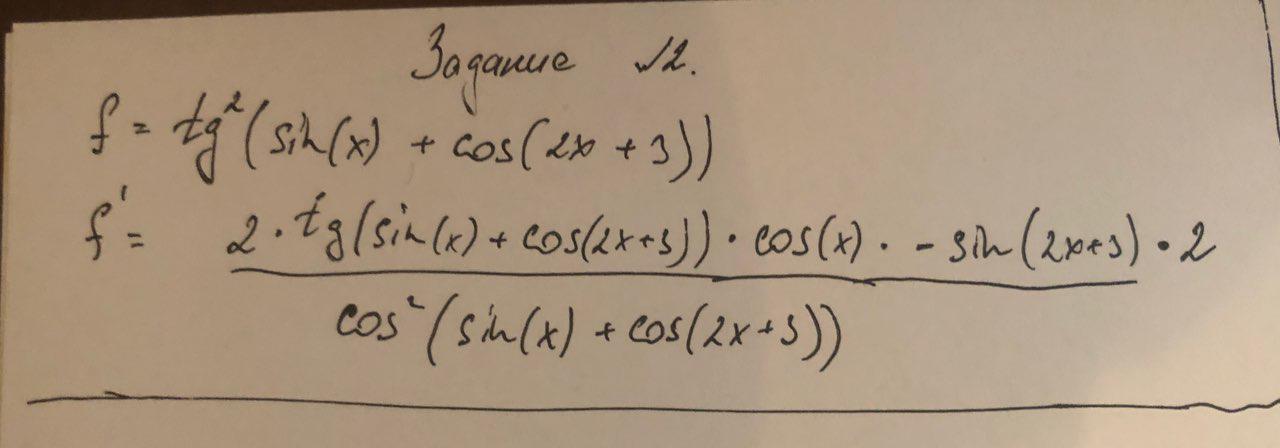 Задание №2.
f = tg²(sin(x) + cos(2x + 3))
f' = 2 · tg(sin(x) + cos(2x+3)) · cos(x) · - sin(2x+3) · 2
cos²(sin(x) + cos(2x+3))